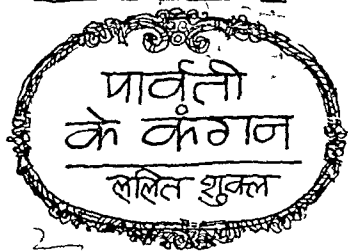 पार्वती
के कंगन
ललित शुक्ल
2